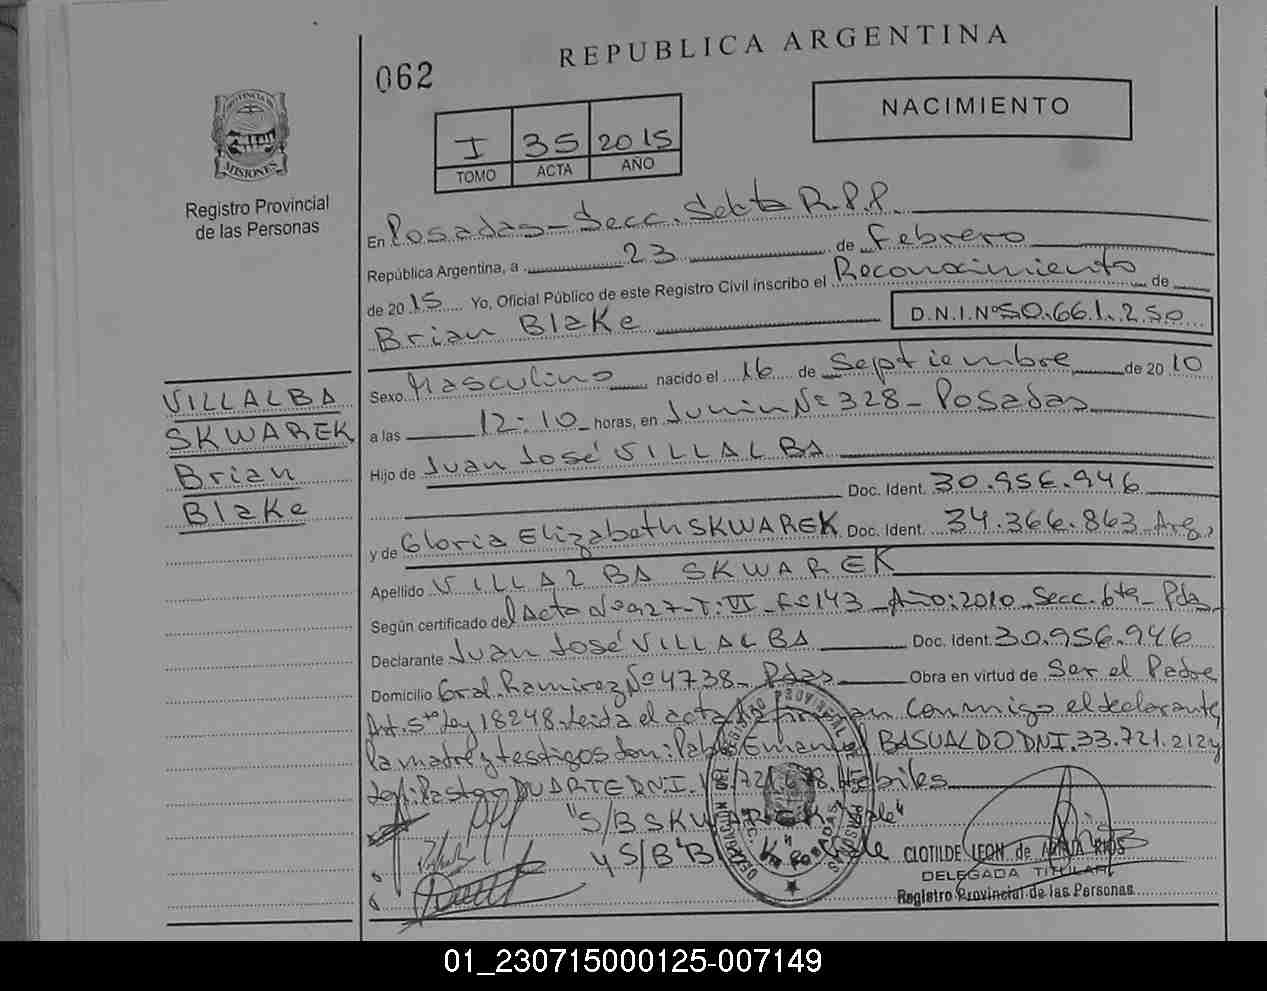 REPUBLICA ARGENTINA
062
NACIMIENTO
I 35 2015
TOMO ACTA AÑO
PROVINCIA DE
MISIONES
Registro Provincial
de las Personas
En Posadas - Secc. Sexta R.P.P.
República Argentina, a 23 de Febrero
de 2015 Yo, Oficial Público de este Registro Civil inscribo el Reconocimiento de
Brian Blake D.N.I.Nº 50.661.250
Sexo Masculino nacido el 16 de Septiembre de 2010
a las 12:10 horas, en Junin Nº 328 - Posadas
Hijo de Juan José VILLALBA
Doc. Ident. 30.956.946
y de Gloria Elizabeth SKWAREK Doc. Ident. 34.366.863 Arg.
Apellido VILLALBA SKWAREK
Según certificado del Acta Nº 927-T:VI-Fº143-Año:2010-Secc. 6ta-Pdas
Declarante Juan José VILLALBA Doc. Ident. 30.956.946
Domicilio Gral. Ramirez Nº 4738 - Pdas Obra en virtud de Ser el Padre
Art. 5to Ley 18248. Leida el acta la firman conmigo el declarante,
la madre y testigos son: Pablo Emanuel BASUALDO DNI. 33.721.212 y
DUARTE DNI. Hábiles
"S/B SKWAREK Vale"
y S/B "Bl Vale
VILLALBA
SKWAREK
Brian
Blake
CLOTILDE LEON de RIOS
DELEGADA TITULAR
Registro Provincial de las Personas
01_230715000125-007149